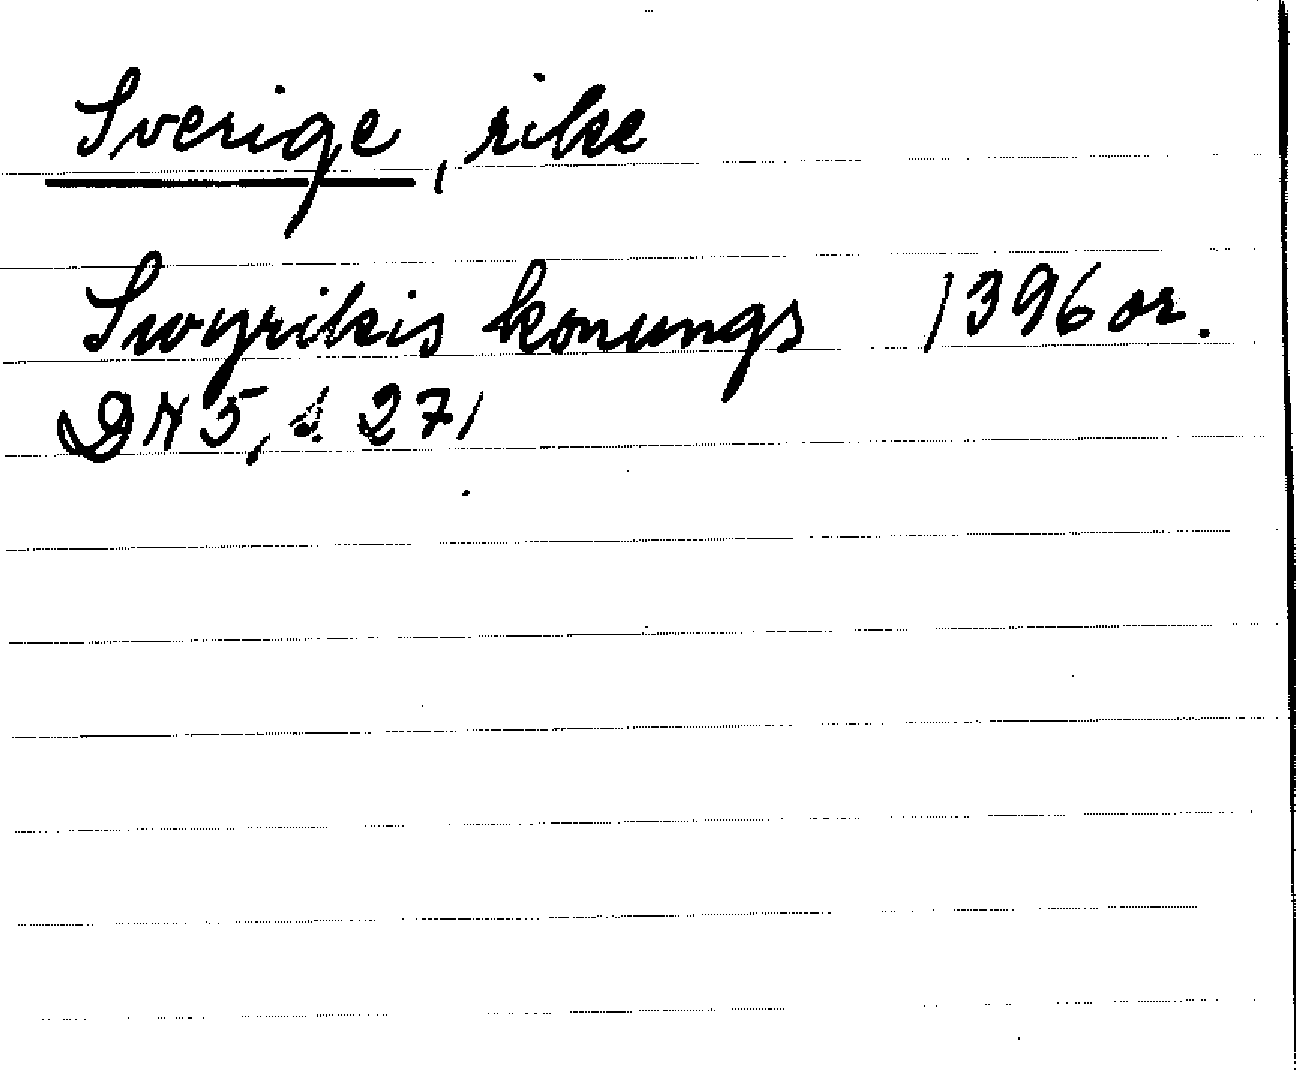 Sverige, rike
Swyrikis konungs 1396 or.
DN 5, s. 271